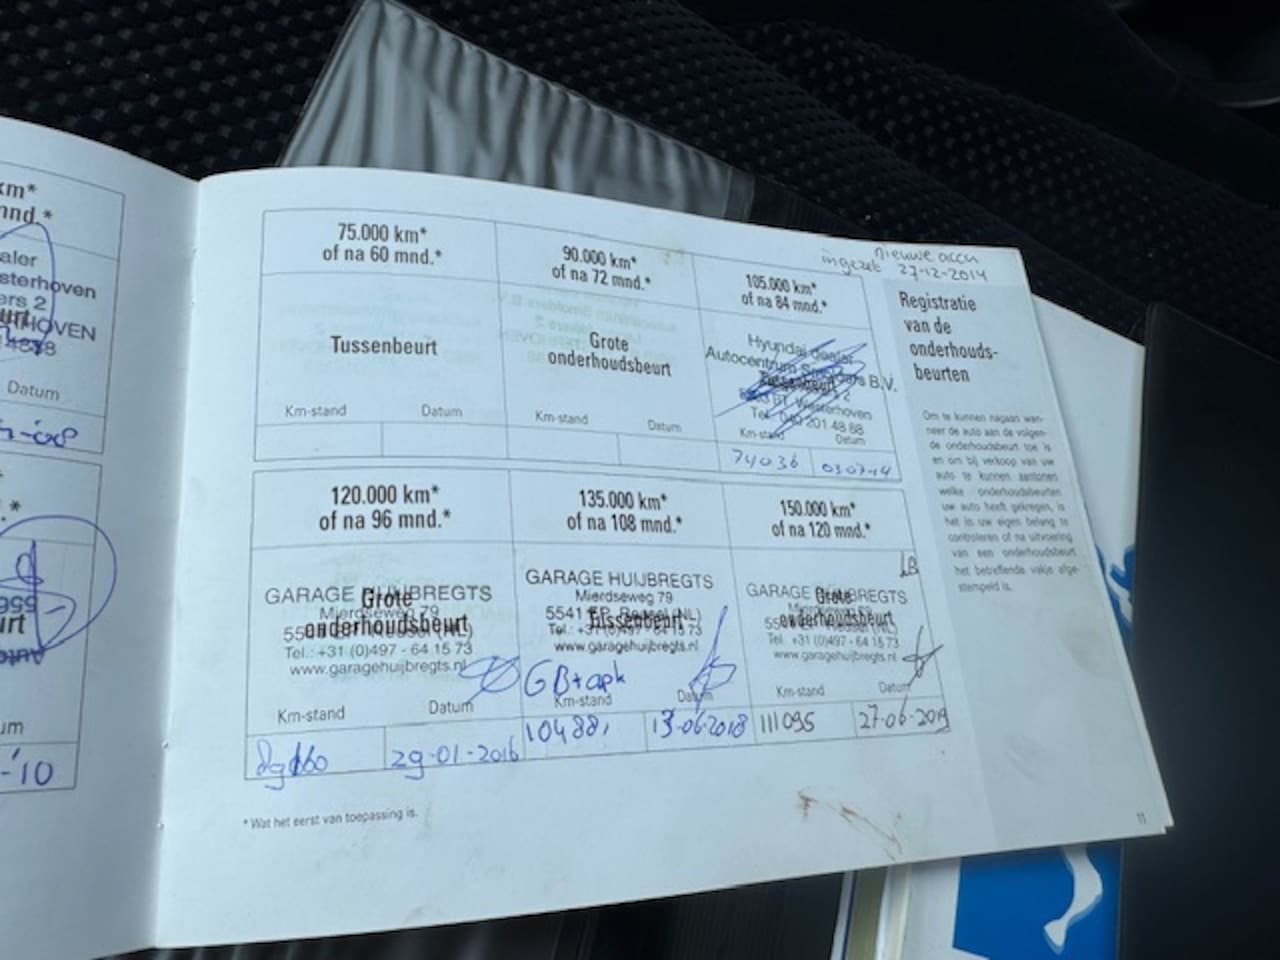 km*
mnd.*
aler
sterhoven
ers 2
HOVEN
Datum
75.000 km*
of na 60 mnd.*
Tussenbeurt
Km-stand Datum
90.000 km*
of na 72 mnd.*
Grote
onderhoudsbeurt
Km-stand Datum
nieuwe accu
ingezet 27-12-2014
105.000 km*
of na 84 mnd.*
Hyundai dealer
Autocentrum Smolders B.V.
Tussenbeurt 2
BT Westerhoven
Tel. 040 201 48 88
Km-stand Datum
74036 03-07-14
120.000 km*
of na 96 mnd.*
GARAGE HUIJBREGTS
Grote
Mierdseweg 79
onderhoudsbeurt
Tel.: +31 (0)497 - 64 15 73
www.garagehuijbregts.nl
Km-stand Datum
29-01-2016
135.000 km*
of na 108 mnd.*
GARAGE HUIJBREGTS
Mierdseweg 79
5541 EP Reusel (NL)
Tussenbeurt
Tel.: +31 (0)497 - 64 15 73
www.garagehuijbregts.nl
GB+apk
Km-stand Datum
104881 13-06-2018
150.000 km*
of na 120 mnd.*
GARAGE HUIJBREGTS
Grote
Mierdseweg 79
onderhoudsbeurt
Tel.: +31 (0)497 - 64 15 73
www.garagehuijbregts.nl
Km-stand Datum
111095 27-06-2019
* Wat het eerst van toepassing is.
Registratie
van de
onderhouds-
beurten
Om te kunnen nagaan wan-
neer de auto aan de volgen-
de onderhoudsbeurt toe is
en om bij verkoop van uw
auto te kunnen aantonen
welke onderhoudsbeurten
uw auto heeft gekregen, is
het in uw eigen belang te
controleren of na uitvoering
van een onderhoudsbeurt
het betreffende vakje afge-
stempeld is.
11
-'10